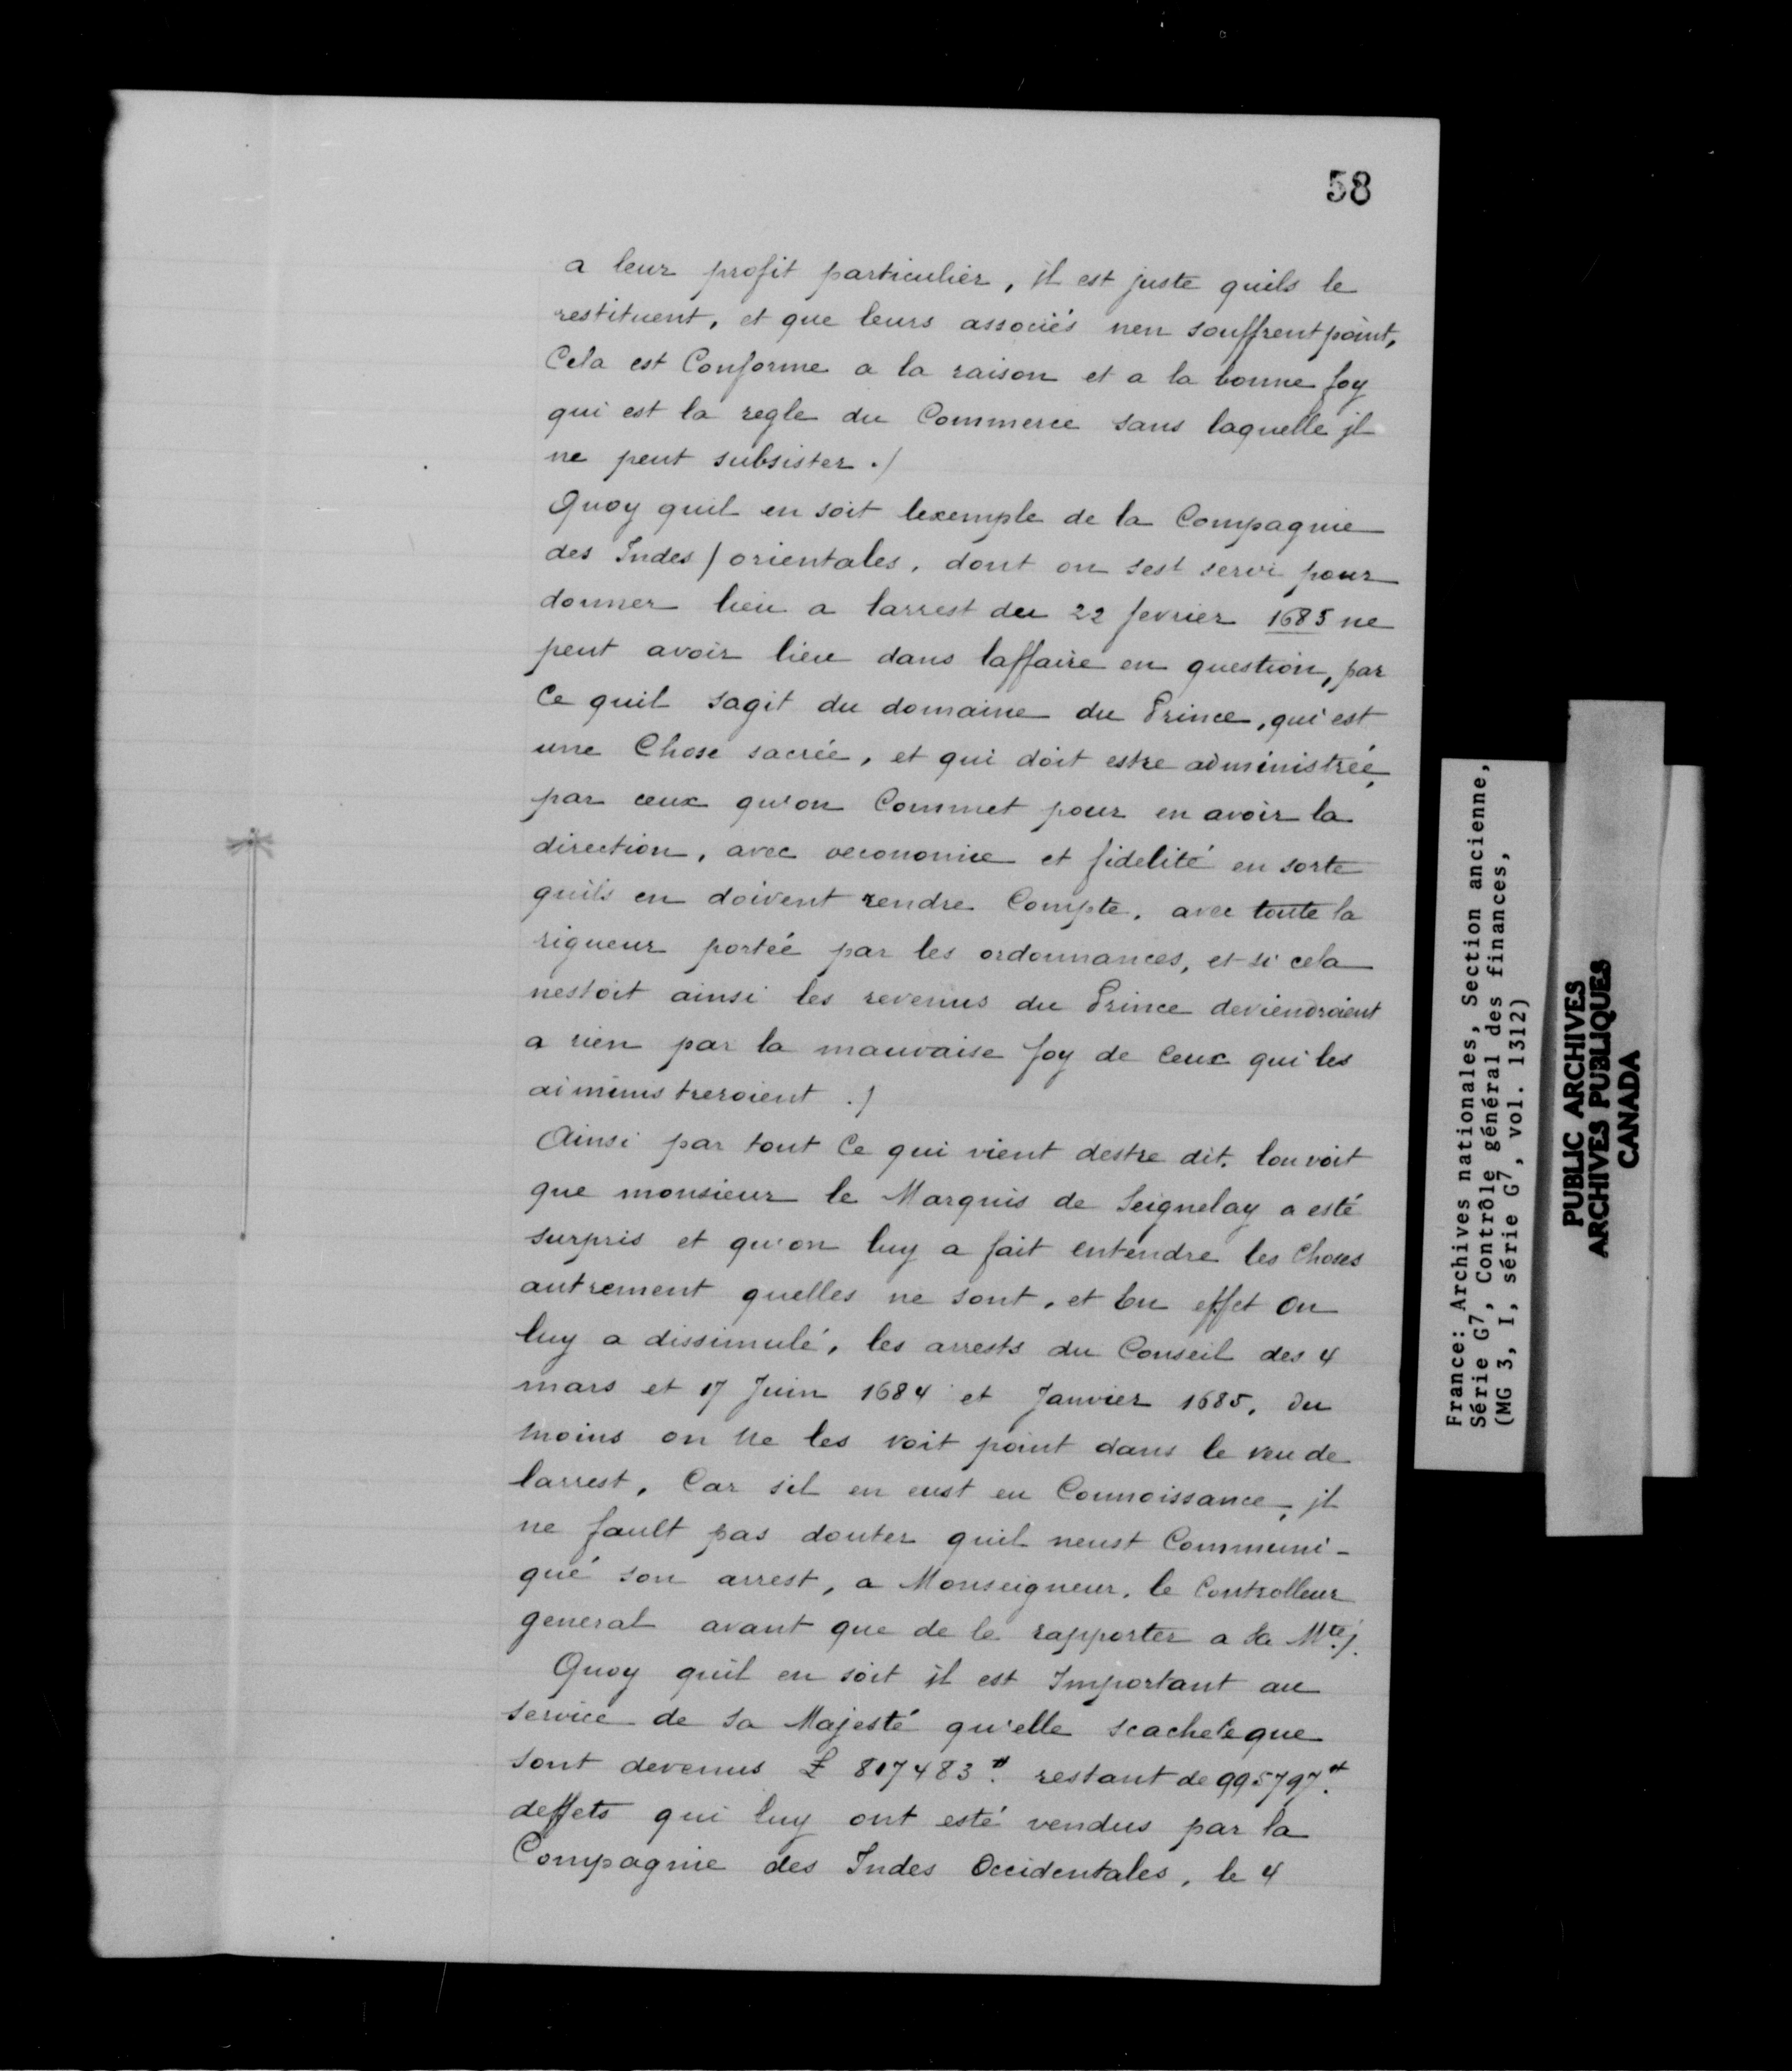 58
a leur profit particulier, il est juste quils le
restituent, et que leurs associés nen souffrent point,
Cela est Conforme a la raison et a la bonne foy
qui est la regle du Commerce sans laquelle jl
ne peut subsister ./
Quoy quil en soit lexemple de la Compagnie
des Indes / orientales, dont on sest servi pour
donner lieu a larrest du 22 fevrier 1685 ne
peut avoir lieu dans laffaire en question, par
Ce quil sagit du domaine du Prince, qui est
une Chose sacrée, et qui doit estre administrée,
par ceux qu'on Commet pour en avoir la
direction, avec oeconomie et fidelité en sorte
quils en doivent rendre Compte, avec toute la
rigueur portée par les ordonnances, et si cela
nestoit ainsi les revenus du Prince deviendroient
a rien par la mauvaise foy de Ceux qui les
aiministreroient ./
Ainsi par tout Ce qui vient destre dit, lon voit
que monsieur le Marquis de Seignelay a esté
surpris et qu'on luy a fait entendre les Choses
autrement quelles ne sont, et En effet On
luy a dissimulé, les arrests du Conseil des 4
mars et 17 Juin 1684 et Janvier 1685, du
moins on ne les voit point dans le veu de
larrest, Car sil en eust eu Connoissance, jl
ne fault pas douter quil neust Communi-
qué son arrest, a Monseigneur, le Controlleur
general avant que de le rapporter a sa Mté./
Quoy quil en soit il est Important au
service de sa Majesté qu'elle scache Ce que
sont devenus £ 817483 ₶. restant de 995797 ₶.
deffets qui luy ont esté vendus par la
Compagnie des Indes Occidentales, le 4
France: Archives nationales, Section ancienne,
Série G7, Contrôle général des finances,
(MG 3, I, série G7, vol. 1312)
PUBLIC ARCHIVES
ARCHIVES PUBLIQUES
CANADA